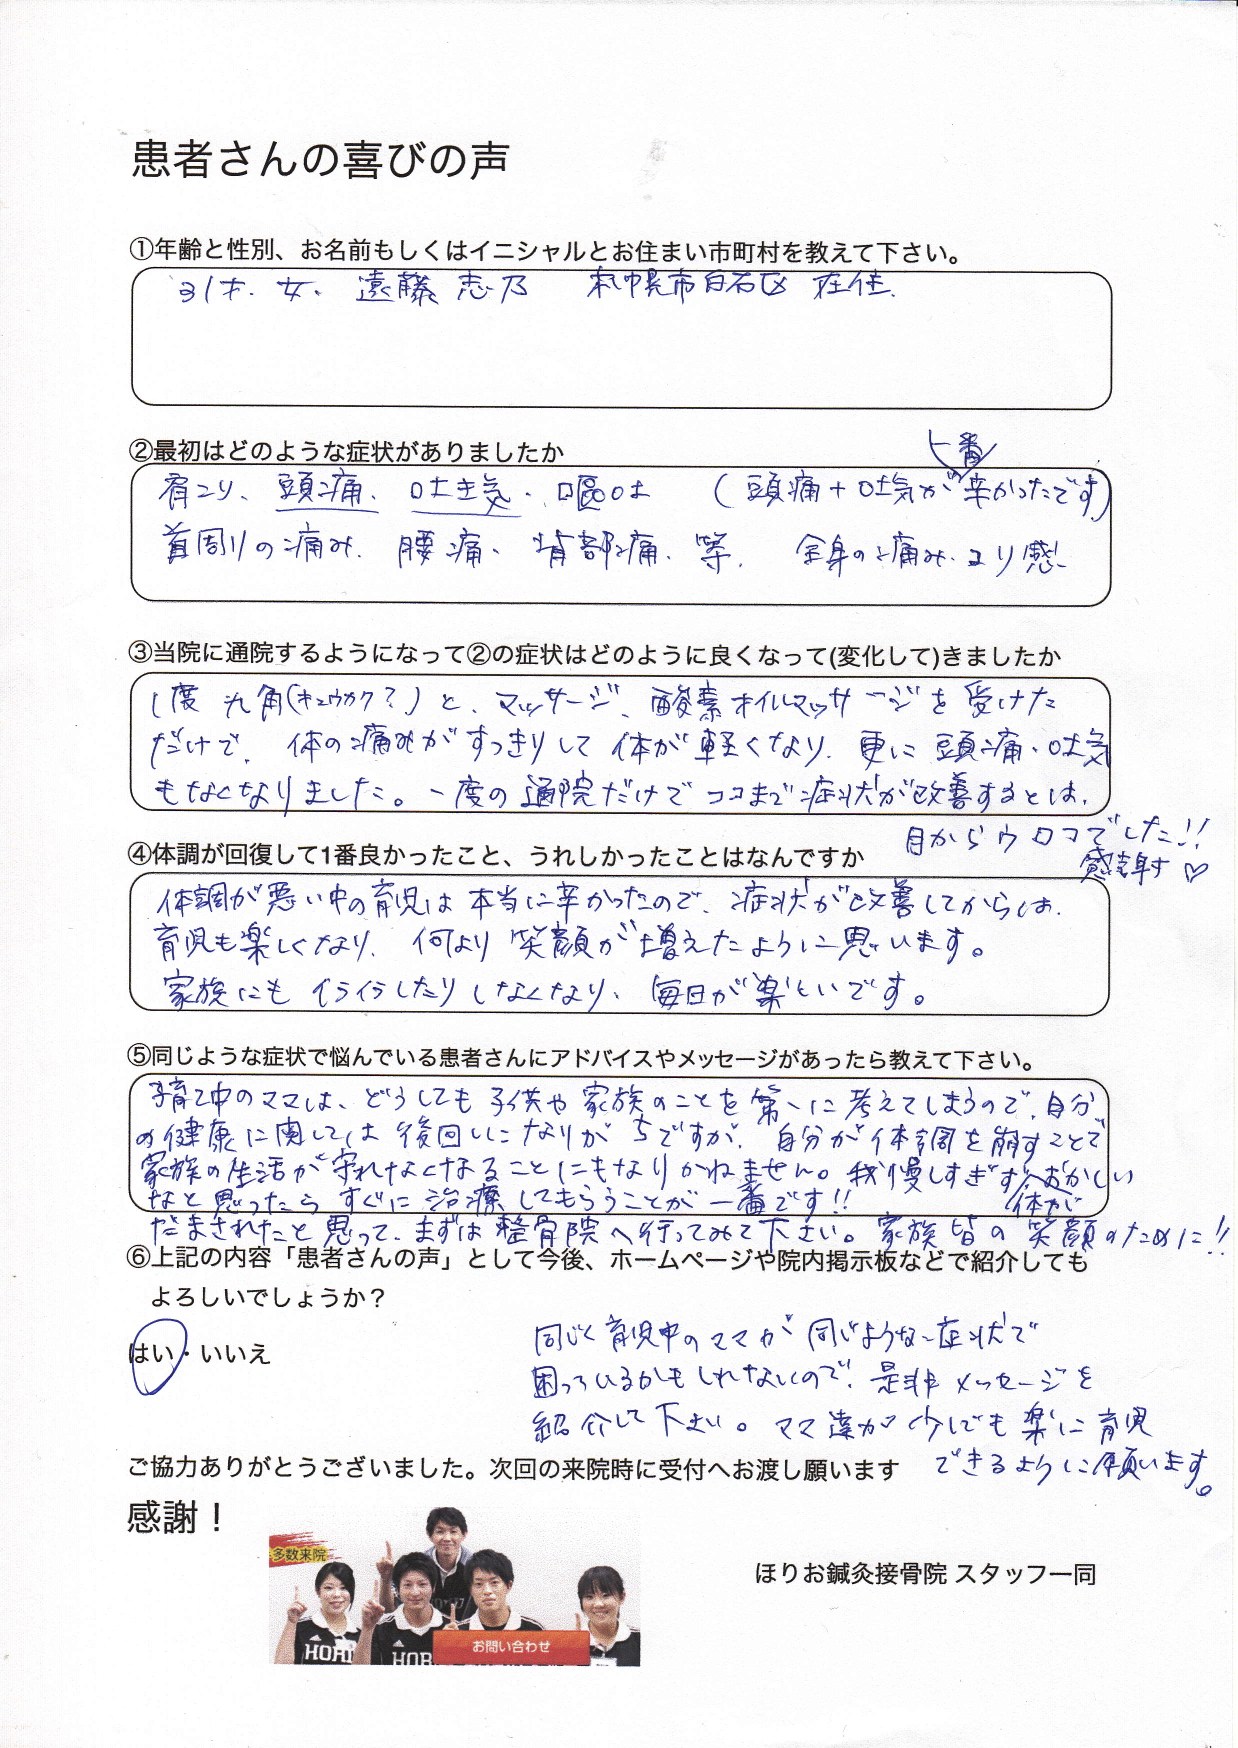 患者さんの喜びの声
①年齢と性別、お名前もしくはイニシャルとお住まい市町村を教えて下さい。
31才. 女. 遠藤 志乃 札幌市白石区 在住.
②最初はどのような症状がありましたか
一番
肩コリ、頭痛、吐き気、嘔吐 (頭痛+吐気が辛かったです)
首周りの痛み、腰痛、背部痛、等. 全身の痛み、コリ感
③当院に通院するようになって②の症状はどのように良くなって(変化して)きましたか
1度 九角(キュウカク?)と、マッサージ、酸素オイルマッサージを受けた
だけで、体の痛みがすっきりして体が軽くなり、更に頭痛・吐気
もなくなりました。一度の通院だけでココまで症状が改善するとは、
目からウロコでした!!
④体調が回復して1番良かったこと、うれしかったことはなんですか
感謝す♡
体調が悪い中の育児は本当に辛かったので、症状が改善してからは、
育児も楽しくなり、何より笑顔が増えたように思います。
家族にもイライラしたりしなくなり、毎日が楽しいです。
⑤同じような症状で悩んでいる患者さんにアドバイスやメッセージがあったら教えて下さい。
子育て中のママは、どうしても子供や家族のことを第一に考えてしまうので、自分
の健康に関しては後回しになりがちですが、自分が体調を崩すことで
家族の生活が守れなくなることにもなりかねません。我慢しすぎず、おかしい
体が
なと思ったらすぐに治療してもらうことが一番です!!
だまされたと思って、まずは整骨院へ行ってみて下さい。家族皆の笑顔のために!!
⑥上記の内容「患者さんの声」として今後、ホームページや院内掲示板などで紹介しても
よろしいでしょうか?
はい・いいえ
同じく育児中のママが同じような症状で
困っているかもしれないので、是非メッセージを
紹介して下さい。ママ達が少しでも楽に育児
できるように願います。
ご協力ありがとうございました。次回の来院時に受付へお渡し願います
感謝!
多数来院
HORI
HOR
お問い合わせ
ほりお鍼灸接骨院 スタッフ一同